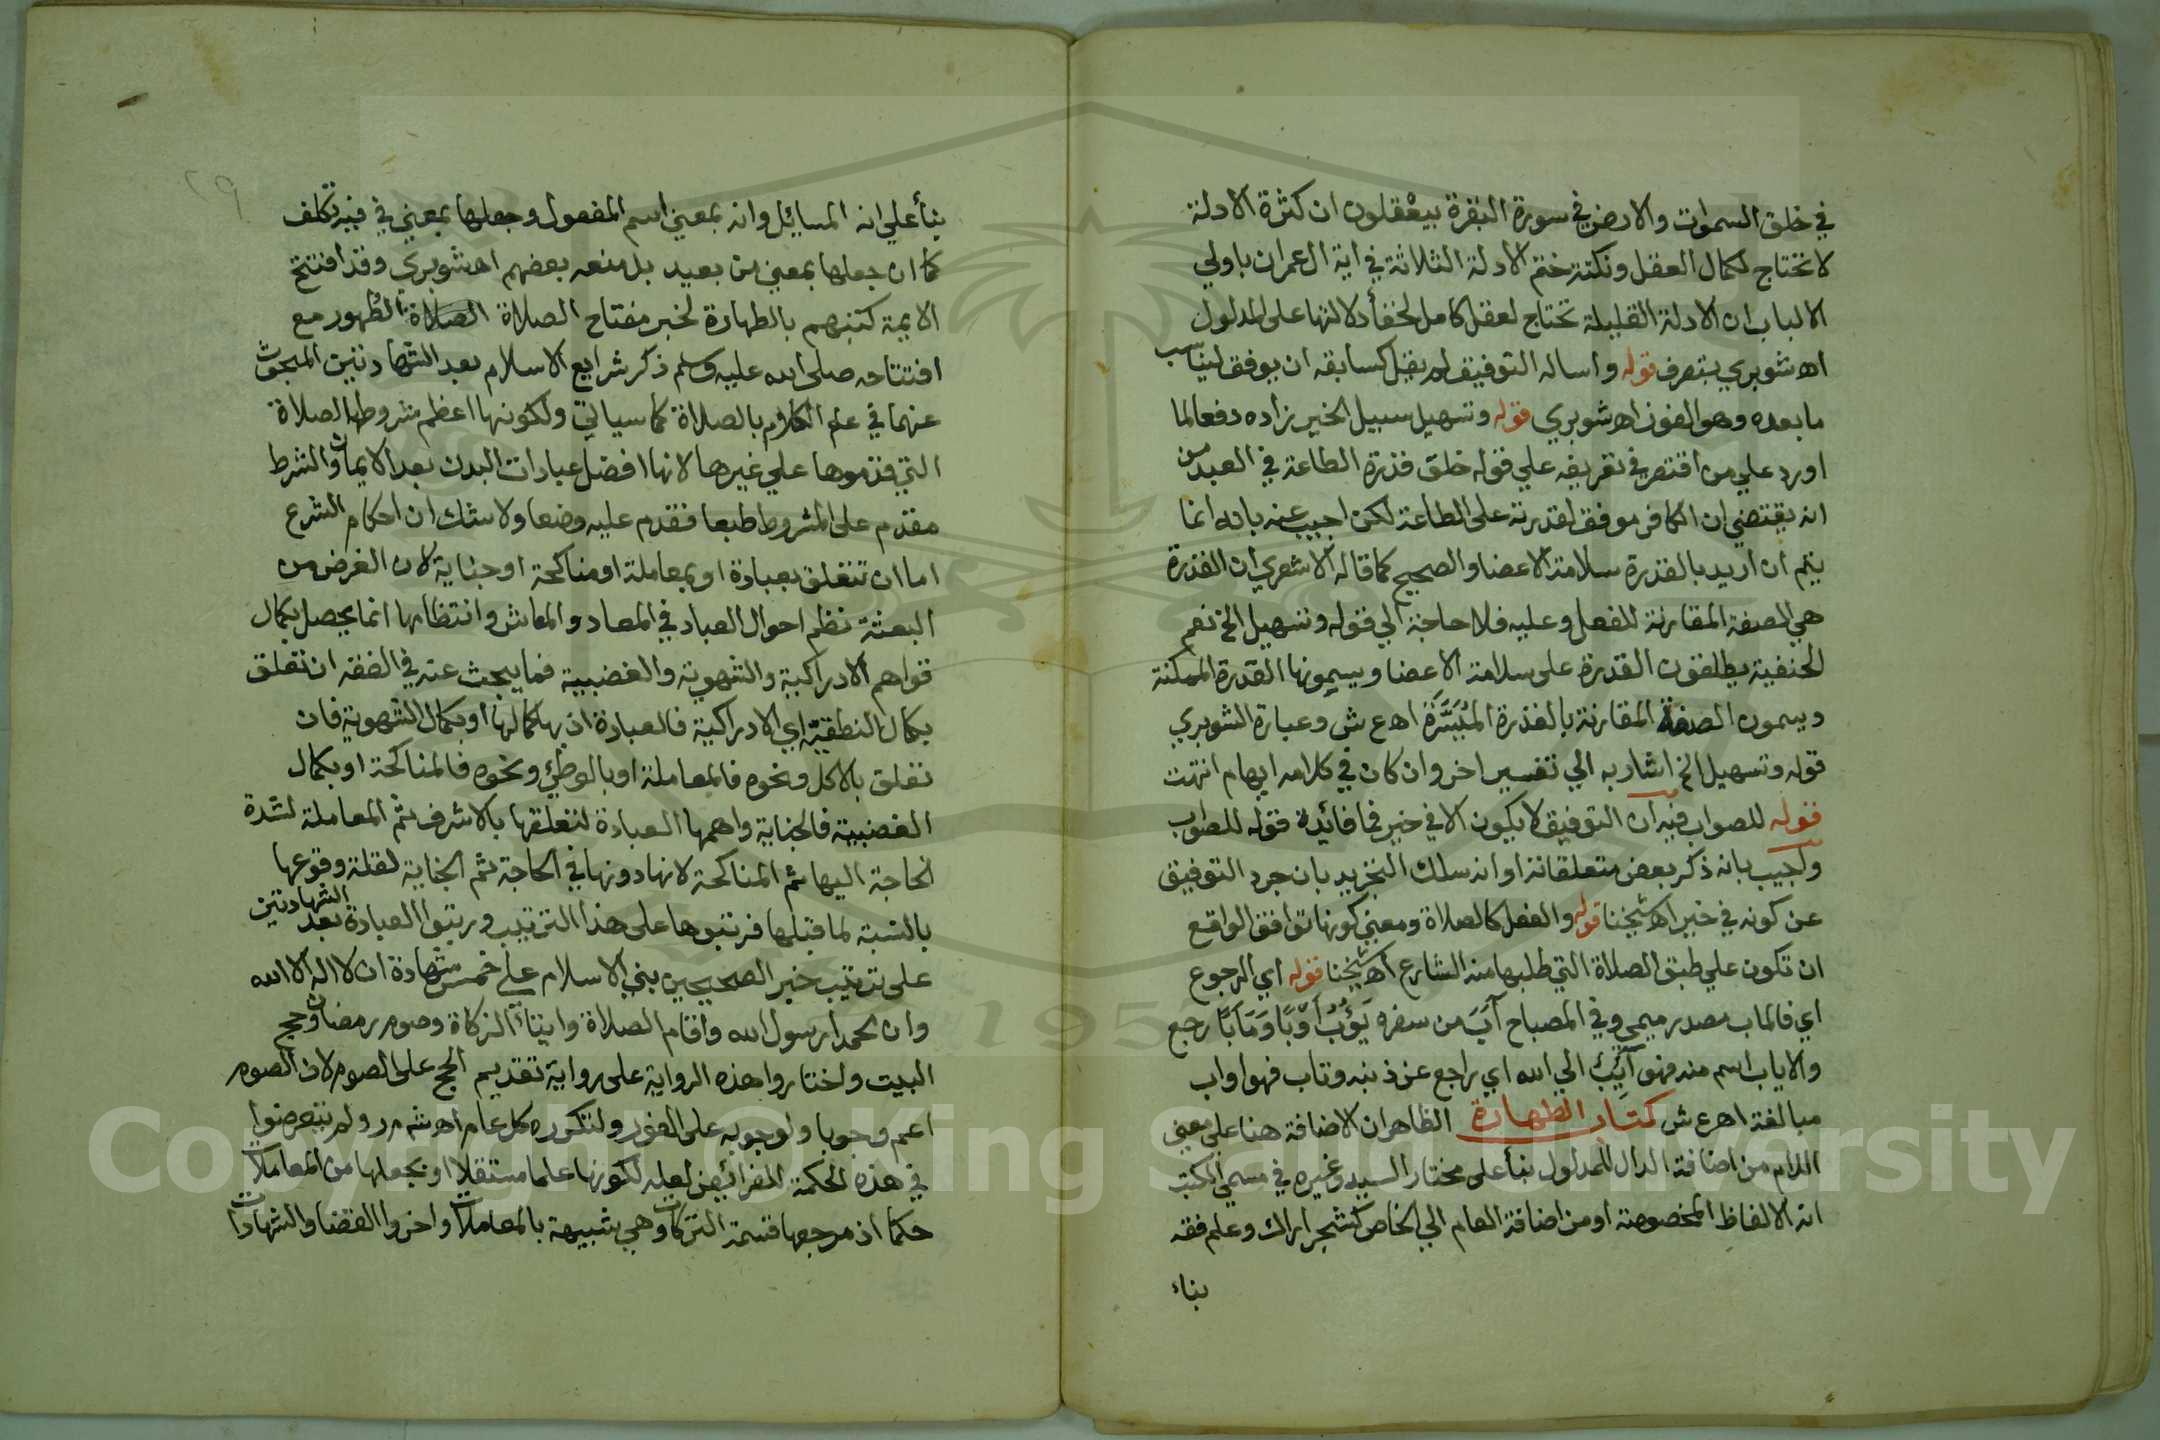 في خلق السموات والارض في سورة البقرة بيعقلون ان كثرة الادلة
لا تحتاج لكمال العقل ونكتة ختم الادلة الثلاثة في اية ال عمران باولي
الالباب ان الادلة القليلة تحتاج لعقل كامل لخفأ دلالتها على المدلول
اه شوبري بتصرف قوله واساله التوفيق لم يقل كسابقه ان يوفق ليناسب
ما بعده وهو الفوز اه شوبري قوله وتسهيل سبيل الخير زاده دفعا لما
اورد علي من اقتصر في تعريفه علي قوله خلق قدرة الطاعة في العبد من
انه يقتضي ان الكافر موفق لقدرته على الطاعة لكن اجيب عنه بانه انما
يتم ان اريد بالقدرة سلامة الاعضا والصحيح كما قاله الاشعري ان القدرة
هي الصفة المقارنة للفعل وعليه فلا حاجة الي قوله وتسهيل الخ نعم
الحنفية يطلقون القدرة على سلامة الاعضا ويسمونها القدرة الممكنة
ويسمون الصفة المقارنة بالقدرة المُيَسَّرَة اه ع ش وعبارة الشوبري
قوله وتسهيل الخ اشار به الي تفسير اخر وان كان في كلامه ايهام انتهت
قوله للصواب فيه ان التوفيق لا يكون الا في خير فما فائدة قوله للصواب
واجيب بانه ذكر بعض متعلقاته او انه سلك التجريد بان جرد التوفيق
عن كونه في خير اه شيخنا قوله والفعل كالصلاة ومعني كونها توافق الواقع
ان تكون علي طبق الصلاة التي طلبها منه الشارع اه شيخنا قوله اي الرجوع
اي فالماب مصدر ميمي وفي المصباح آبَ من سفره يَؤُبُ أَوْبًا وَمَآبًا رجع
والاياب اسم منه فهو آيِبٌ الي الله اي راجع عن ذنبه وتاب فهو اواب
مبالغة اه ع ش كتاب الطهارة الظاهر ان الاضافة هنا علي معني
اللام من اضافة الدال للمدلول بنأ على مختار السيد وغيره في مسمي الكتب
انه الالفاظ المخصوصة او من اضافة العام الي الخاص كشجر اراك وعلم فقه
بناء
٢٩
بنأ علي انه المسائل وانه بمعني اسم المفعول وجعلها بمعني في فيه تكلف
كما ان جعلها بمعني من بعيد بل منعه بعضهم اه شوبري وقد افتتح
الايمة كتبهم بالطهارة لخبر مفتاح الصلاة الصلاة الطهور مع
افتتاحه صلى الله عليه وسلم ذكر شرايع الاسلام بعد الشهادتين المبحوث
عنهما في علم الكلام بالصلاة كما سياتي ولكونها اعظم شروط الصلاة
التي قدموها علي غيرها لانها افضل عبادات البدن بعد الايمان والشرط
مقدم على المشروط طبعا فقدم عليه وضعا ولا شك ان احكام الشرع
اما ان تتعلق بعبادة او بمعاملة او مناكحة او جناية لان الغرض من
البعثة نظم احوال العباد في المعاد والمعاش وانتظامها انما يحصل بكمال
قواهم الادراكية والشهوية والغضبية فما يبحث عنه في الفقه ان تعلق
بكمال النطقية اي الادراكية فالعبادة اذ بها كمالها او بكمال الشهوية فان
تعلق بالاكل ونحوه فالمعاملة او بالوطئ ونحوه فالمناكحة او بكمال
الغضبية فالجناية واهمها العبادة لتعلقها بالاشرف ثم المعاملة لشدة
الحاجة اليها ثم المناكحة لانها دونها في الحاجة ثم الجناية لقلة وقوعها
بالنسبة لما قبلها فرتبوها على هذا الترتيب ورتبوا العبادة بعد الشهادتين
على ترتيب خبر الصحيحين بني الاسلام علي خمس شهادة ان لا اله الا الله
وان محمدا رسول الله واقام الصلاة وايتاء الزكاة وصوم رمضان وحج
البيت واختاروا هذه الرواية على رواية تقديم الحج على الصوم لان الصوم
اعم وجوبا ولوجوبه على الفور ولتكرره كل عام اه ش م ر ولم يتعرضوا
في هذه الحكمة للفرائض لعله لكونها علما مستقلا او بجعلها من المعاملات
حكما اذ مرجعها قسمة التركات وهي شبيهة بالمعاملات واخروا القضا والشهادات